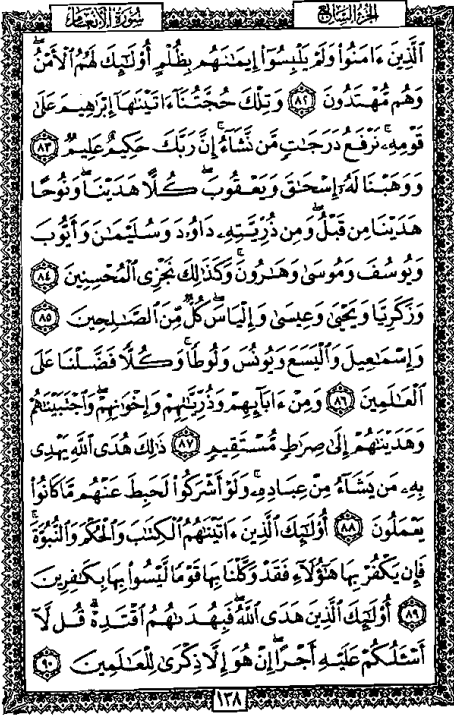 الجزء السابع
سورة الأنعام
ٱلَّذِينَ ءَامَنُوا۟ وَلَمْ يَلْبِسُوٓا۟ إِيمَـٰنَهُم بِظُلْمٍ أُو۟لَـٰٓئِكَ لَهُمُ ٱلْأَمْنُ
وَهُم مُّهْتَدُونَ ﴿٨٢﴾ وَتِلْكَ حُجَّتُنَآ ءَاتَيْنَـٰهَآ إِبْرَٰهِيمَ عَلَىٰ
قَوْمِهِۦ ۚ نَرْفَعُ دَرَجَـٰتٍ مَّن نَّشَآءُ ۗ إِنَّ رَبَّكَ حَكِيمٌ عَلِيمٌ ﴿٨٣﴾
وَوَهَبْنَا لَهُۥٓ إِسْحَـٰقَ وَيَعْقُوبَ ۚ كُلًّا هَدَيْنَا ۚ وَنُوحًا
هَدَيْنَا مِن قَبْلُ ۖ وَمِن ذُرِّيَّتِهِۦ دَاوُۥدَ وَسُلَيْمَـٰنَ وَأَيُّوبَ
وَيُوسُفَ وَمُوسَىٰ وَهَـٰرُونَ ۚ وَكَذَٰلِكَ نَجْزِى ٱلْمُحْسِنِينَ ﴿٨٤﴾
وَزَكَرِيَّا وَيَحْيَىٰ وَعِيسَىٰ وَإِلْيَاسَ ۖ كُلٌّ مِّنَ ٱلصَّـٰلِحِينَ ﴿٨٥﴾
وَإِسْمَـٰعِيلَ وَٱلْيَسَعَ وَيُونُسَ وَلُوطًا ۚ وَكُلًّا فَضَّلْنَا عَلَى
ٱلْعَـٰلَمِينَ ﴿٨٦﴾ وَمِنْ ءَابَآئِهِمْ وَذُرِّيَّـٰتِهِمْ وَإِخْوَٰنِهِمْ ۖ وَٱجْتَبَيْنَـٰهُمْ
وَهَدَيْنَـٰهُمْ إِلَىٰ صِرَٰطٍ مُّسْتَقِيمٍ ﴿٨٧﴾ ذَٰلِكَ هُدَى ٱللَّهِ يَهْدِى
بِهِۦ مَن يَشَآءُ مِنْ عِبَادِهِۦ ۚ وَلَوْ أَشْرَكُوا۟ لَحَبِطَ عَنْهُم مَّا كَانُوا۟
يَعْمَلُونَ ﴿٨٨﴾ أُو۟لَـٰٓئِكَ ٱلَّذِينَ ءَاتَيْنَـٰهُمُ ٱلْكِتَـٰبَ وَٱلْحُكْمَ وَٱلنُّبُوَّةَ ۚ
فَإِن يَكْفُرْ بِهَا هَـٰٓؤُلَآءِ فَقَدْ وَكَّلْنَا بِهَا قَوْمًا لَّيْسُوا۟ بِهَا بِكَـٰفِرِينَ
﴿٨٩﴾ أُو۟لَـٰٓئِكَ ٱلَّذِينَ هَدَى ٱللَّهُ ۖ فَبِهُدَىٰهُمُ ٱقْتَدِهْ ۗ قُل لَّآ
أَسْـَٔلُكُمْ عَلَيْهِ أَجْرًا ۖ إِنْ هُوَ إِلَّا ذِكْرَىٰ لِلْعَـٰلَمِينَ ﴿٩٠﴾
١٣٨